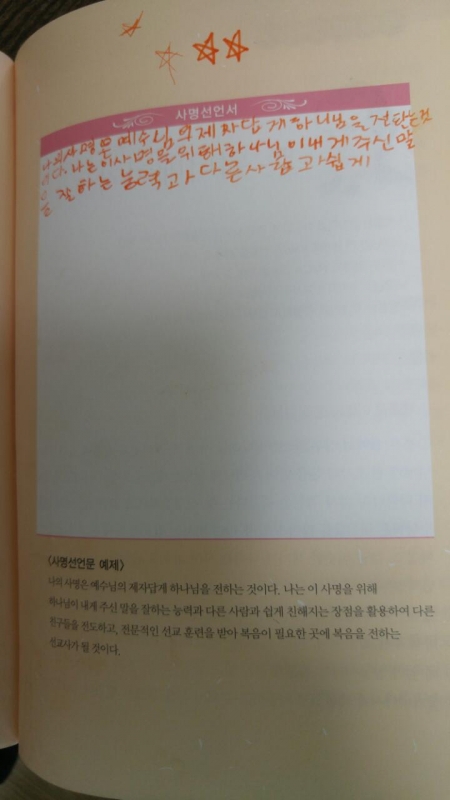 사명선언서
나의 사명은 예수님의 제자답게 하나님을 전하는 것
이다. 나는 이 사명을 위해 하나님이 내게 주신 말
을 잘 하는 능력과 다른 사람과 쉽게
〈사명선언문 예제〉
나의 사명은 예수님의 제자답게 하나님을 전하는 것이다. 나는 이 사명을 위해
하나님이 내게 주신 말을 잘하는 능력과 다른 사람과 쉽게 친해지는 장점을 활용하여 다른
친구들을 전도하고, 전문적인 선교 훈련을 받아 복음이 필요한 곳에 복음을 전하는
선교사가 될 것이다.